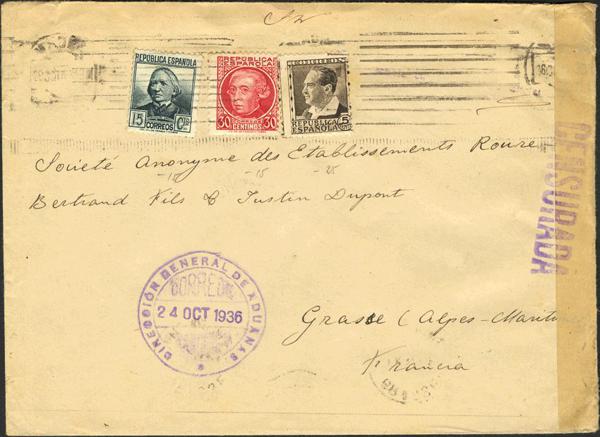 REPÚBLICA ESPAÑOLA
15 CTS
CORREOS
REPÚBLICA
ESPAÑOLA
30 30
CENTIMOS
CORREOS
5
REPUBLICA
ESPAÑOLA CTS
Societé Anonyme des Etablissements Roure
-15 -25
Bertrand Fils & Justin Dupont
CENSURADA
DIRECCIÓN GENERAL DE ADUANAS
CORREOS
24 OCT 1936
Grasse (Alpes-Maritim
Francia